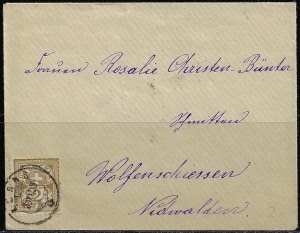 Frauen Rosalie Christen-Bünter
Schmitten
Wolfenschiessen
Nidwalden.